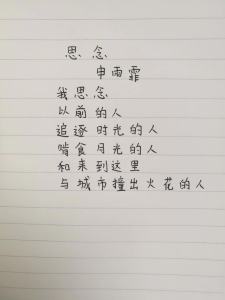 思念
申雨霏
我思念
以前的人
追逐时光的人
啃食月光的人
和来到这里
与城市撞出火花的人